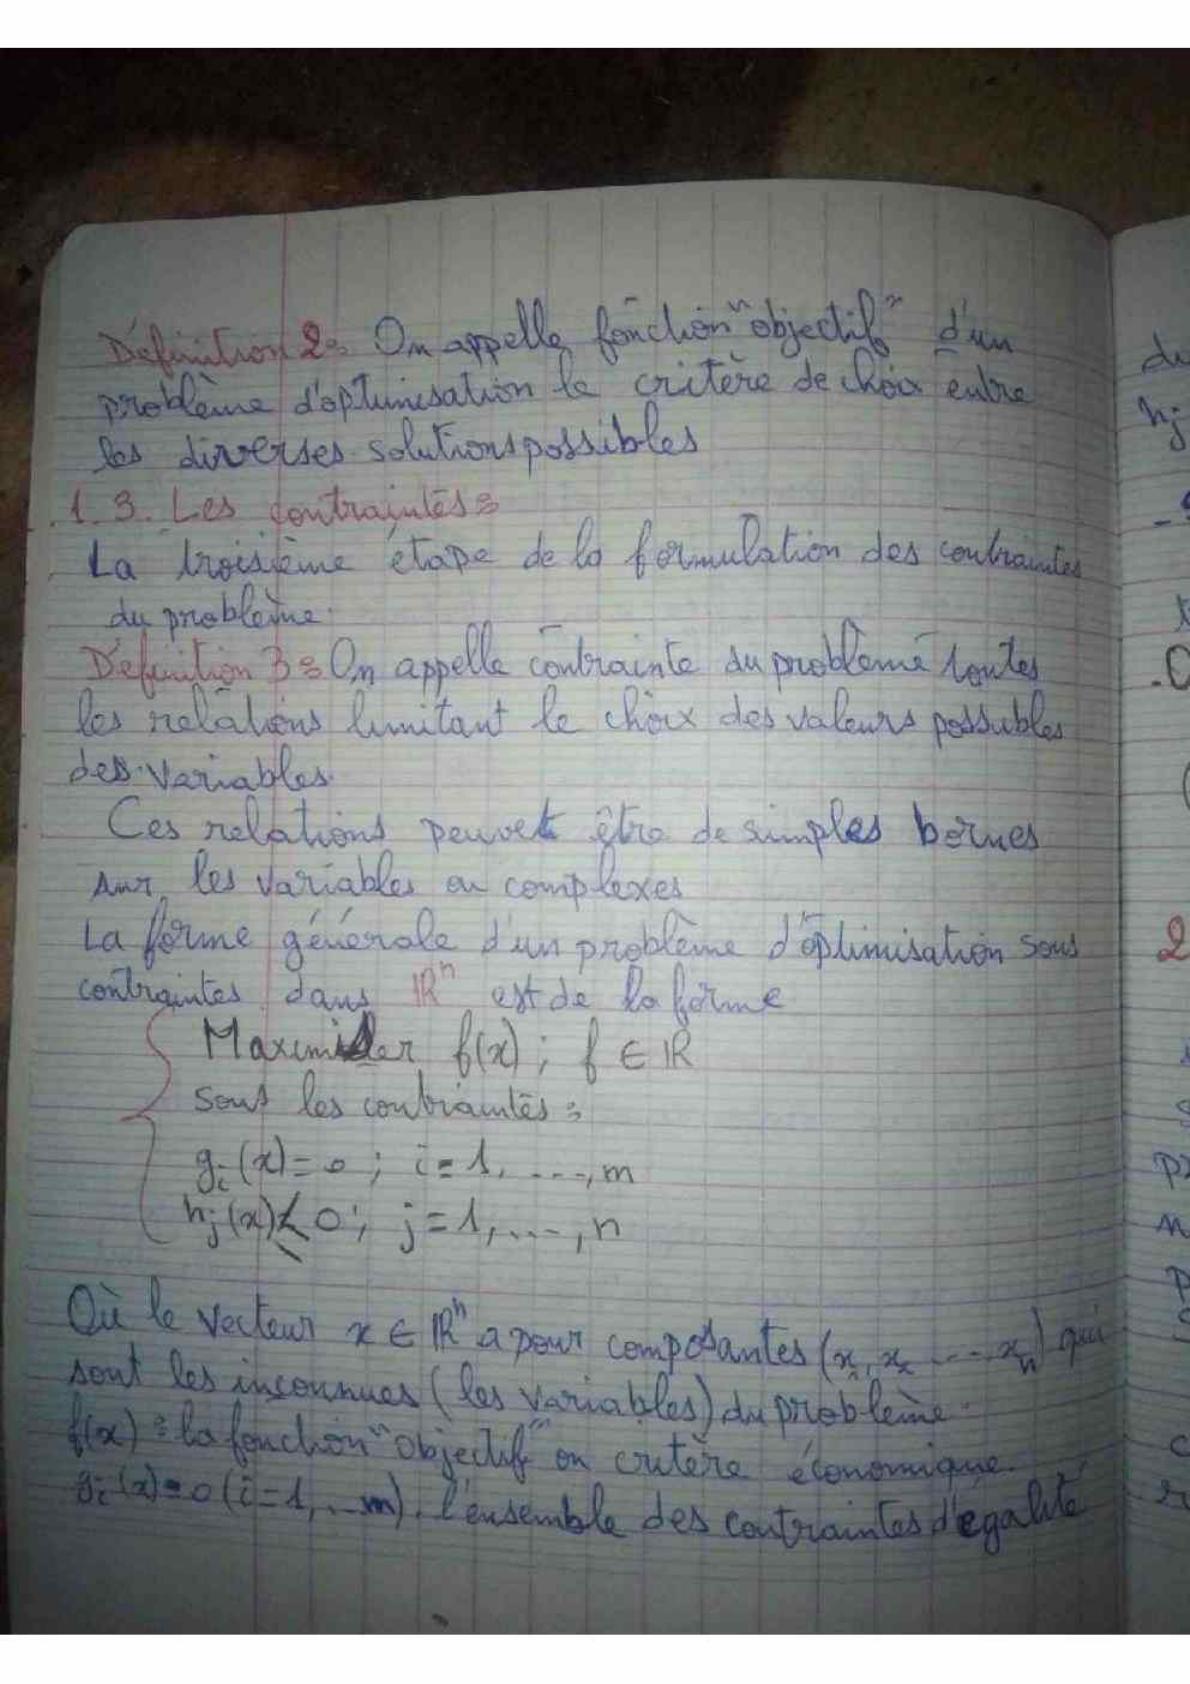 Définition 2: On appelle fonction "objectif" d'un
problème d'optimisation le critère de choix entre
les diverses solutions possibles
1.3. Les contraintes:
La troisième étape de la formulation des contraintes
du problème.
Définition 3: On appelle contrainte du problème toutes
les relations limitant le choix des valeurs possibles
des variables.
Ces relations peuvet être de simples bornes
sur les variables ou complexes
La forme générale d'un problème d'optimisation sous
contraintes dans ℝⁿ est de la forme
Maximiser f(x); f ∈ ℝ
Sous les contraintes:
gᵢ(x)=0; i=1,...,m
hⱼ(x)≤0; j=1,...,n
Où le vecteur x ∈ ℝⁿ a pour composantes (x₁, x₂ ... xₙ) qui
sont les inconnues (les variables) du problème.
f(x): la fonction "objectif" ou critère économique.
gᵢ(x)=0 (i=1,...m). l'ensemble des contraintes d'égalité
du
hⱼ